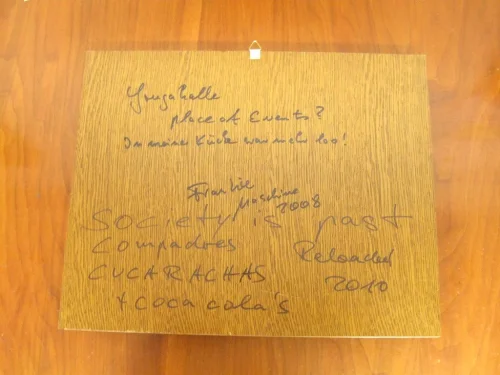 place of Events?
In meiner Küche war mehr los!
Frankie
Maschine
2008
Society is past
Compadres
Reloaded
CUCARACHAS
2010
+ Coca cola's